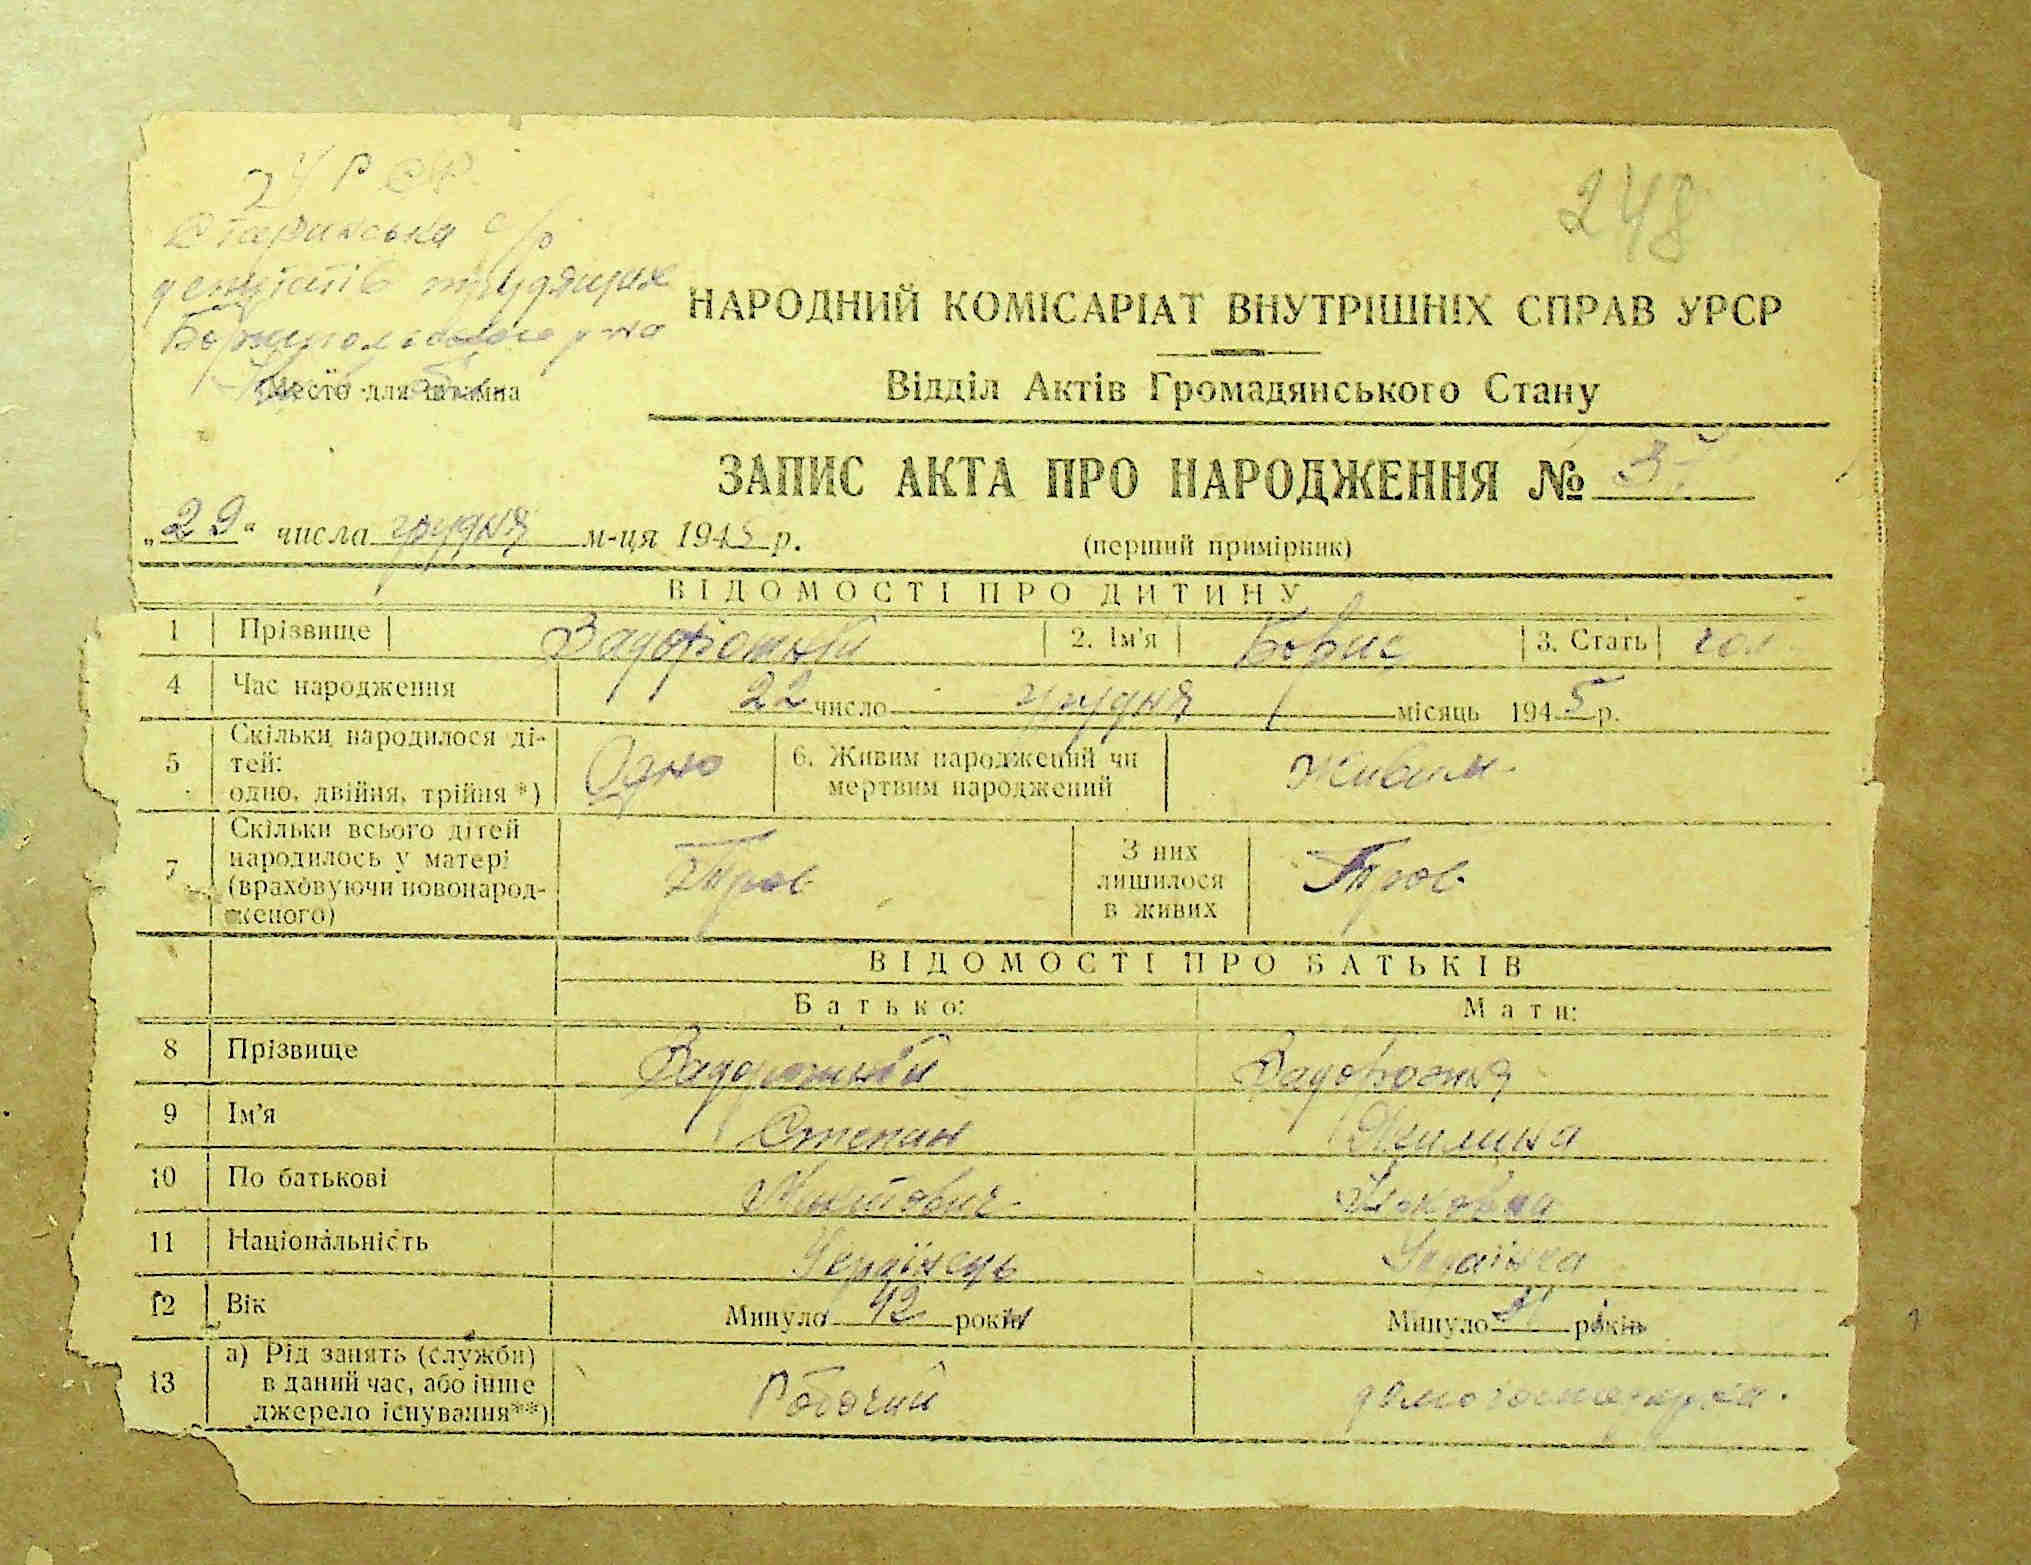 УРСР
248
Старинська с/р
депутатів трудящих
Бориспольського р-на
НАРОДНИЙ КОМІСАРІАТ ВНУТРІШНІХ СПРАВ УРСР
Место для штампа
Відділ Актів Громадянського Стану
ЗАПИС АКТА ПРО НАРОДЖЕННЯ №
„29“ числа грудня м-ця 1945 р.
(перший примірник)
ВІДОМОСТІ ПРО ДИТИНУ
1 Прізвище Задорожній 2. Ім'я Борис 3. Стать чол
4 Час народження 22 число грудня місяць 1945 р.
5 Скільки народилося ді-
тей:
одно, двійня, трійня *) Одно 6. Живим народжений чи
мертвим народжений Живим
7 Скільки всього дітей
народилось у матері
(враховуючи новонарод-
женого) Троє З них
лишилося
в живих Троє
ВІДОМОСТІ ПРО БАТЬКІВ
Батько: Мати:
8 Прізвище Задорожний Задорожня
9 Ім'я Степан
10 По батькові
11 Національність Українець Українка
12 Вік Минуло 42 років Минуло років
13 а) Рід занять (служби)
в даний час, або інше
джерело існування**) Робочий домогосподарка